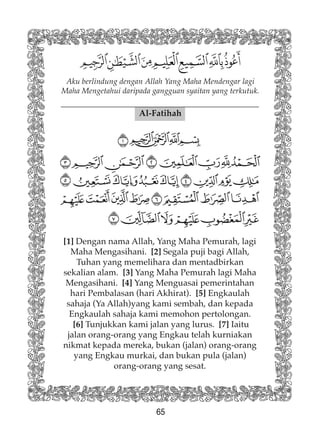 أَعُوذُ بِٱللَّهِ ٱلسَّمِيعِ ٱلْعَلِيمِ مِنَ ٱلشَّيْطَٰنِ ٱلرَّجِيمِ
Aku berlindung dengan Allah Yang Maha Mendengar lagi
Maha Mengetahui daripada gangguan syaitan yang terkutuk.
Al-Fatihah
بِسْمِ ٱللَّهِ ٱلرَّحْمَٰنِ ٱلرَّحِيمِ ﴿١﴾
ٱلْحَمْدُ لِلَّهِ رَبِّ ٱلْعَٰلَمِينَ ﴿٢﴾ ٱلرَّحْمَٰنِ ٱلرَّحِيمِ ﴿٣﴾
مَٰلِكِ يَوْمِ ٱلدِّينِ ﴿٤﴾ إِيَّاكَ نَعْبُدُ وَإِيَّاكَ نَسْتَعِينُ ﴿٥﴾
ٱهْدِنَا ٱلصِّرَٰطَ ٱلْمُسْتَقِيمَ ﴿٦﴾ صِرَٰطَ ٱلَّذِينَ أَنْعَمْتَ عَلَيْهِمْ
غَيْرِ ٱلْمَغْضُوبِ عَلَيْهِمْ وَلَا ٱلضَّآلِّينَ ﴿٧﴾
[1] Dengan nama Allah, Yang Maha Pemurah, lagi
Maha Mengasihani. [2] Segala puji bagi Allah,
Tuhan yang memelihara dan mentadbirkan
sekalian alam. [3] Yang Maha Pemurah lagi Maha
Mengasihani. [4] Yang Menguasai pemerintahan
hari Pembalasan (hari Akhirat). [5] Engkaulah
sahaja (Ya Allah)yang kami sembah, dan kepada
Engkaulah sahaja kami memohon pertolongan.
[6] Tunjukkan kami jalan yang lurus. [7] Iaitu
jalan orang-orang yang Engkau telah kurniakan
nikmat kepada mereka, bukan (jalan) orang-orang
yang Engkau murkai, dan bukan pula (jalan)
orang-orang yang sesat.
65